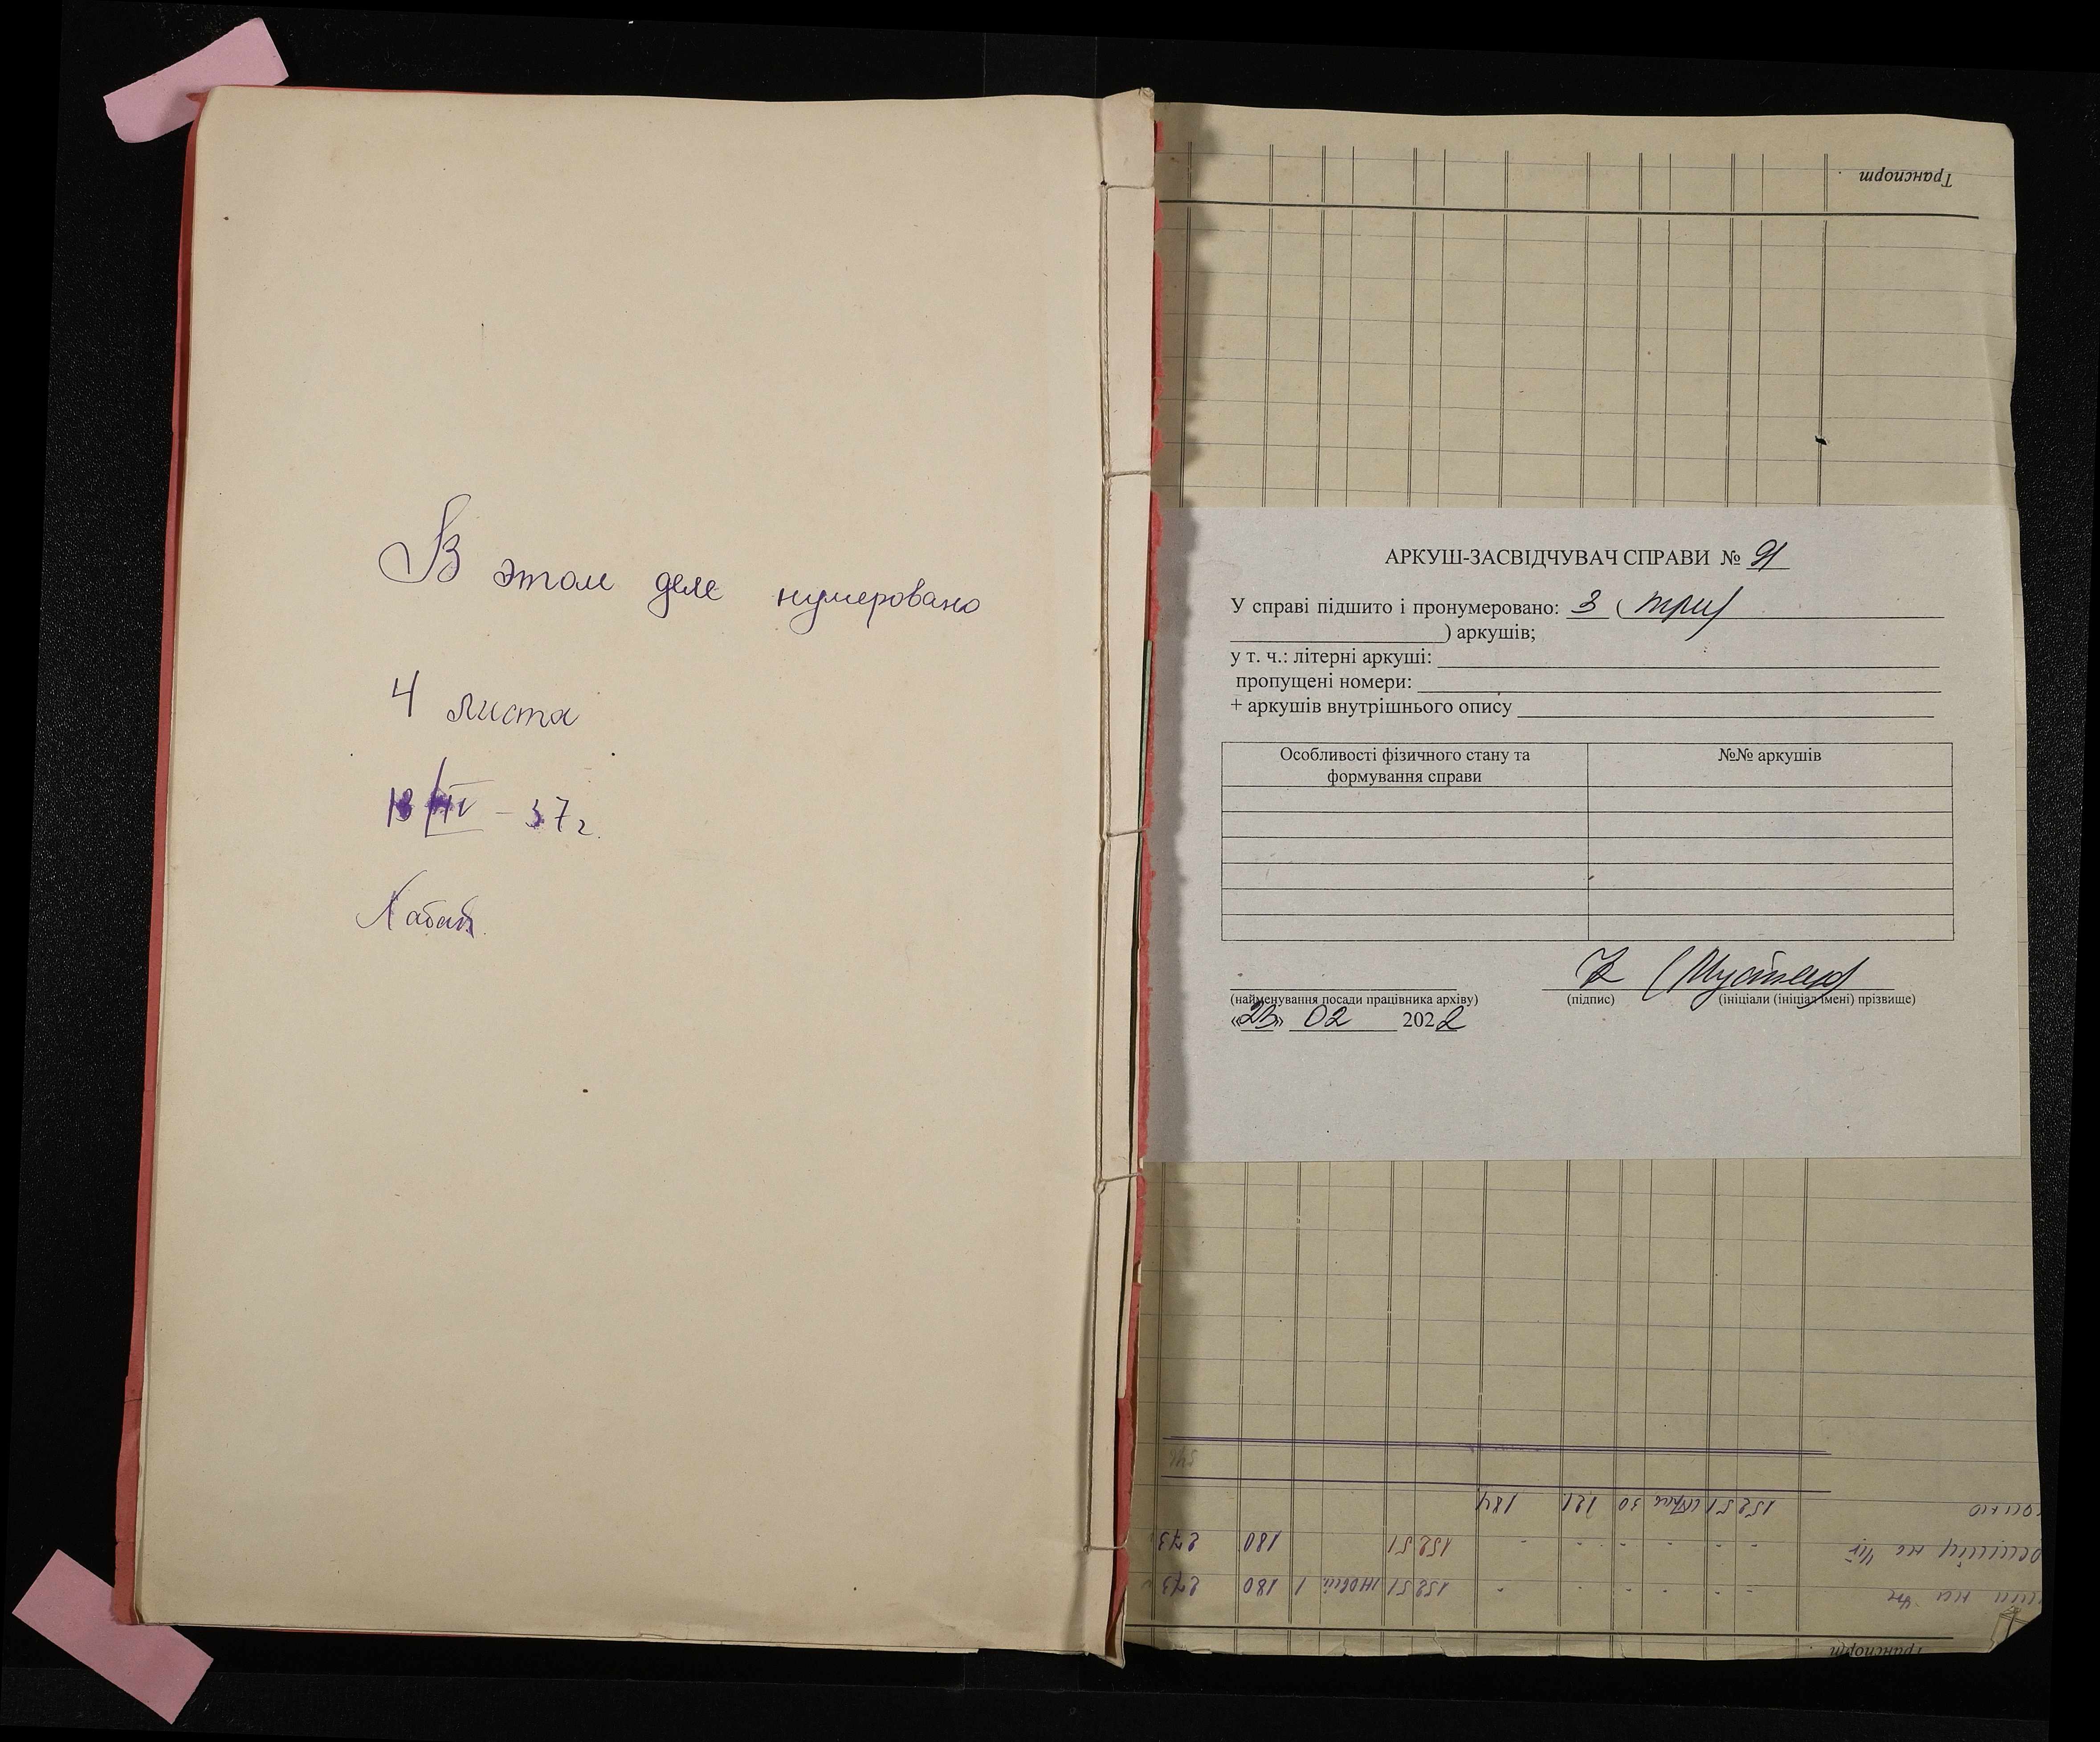 В этом деле нумеровано
4 листа
13/IV - 37 г.
Транспорт
АРКУШ-ЗАСВІДЧУВАЧ СПРАВИ № 91
У справі підшито і пронумеровано: 3 ( три
) аркушів;
у т. ч.: літерні аркуші:
пропущені номери:
+ аркушів внутрішнього опису
Особливості фізичного стану та формування справи
№№ аркушів
(найменування посади працівника архіву) (підпис) (ініціали (ініціал імені) прізвище)
«23» 02 2022
184 121 30 152 51
273 180 152 51
273 180 1 152 51
Транспорт